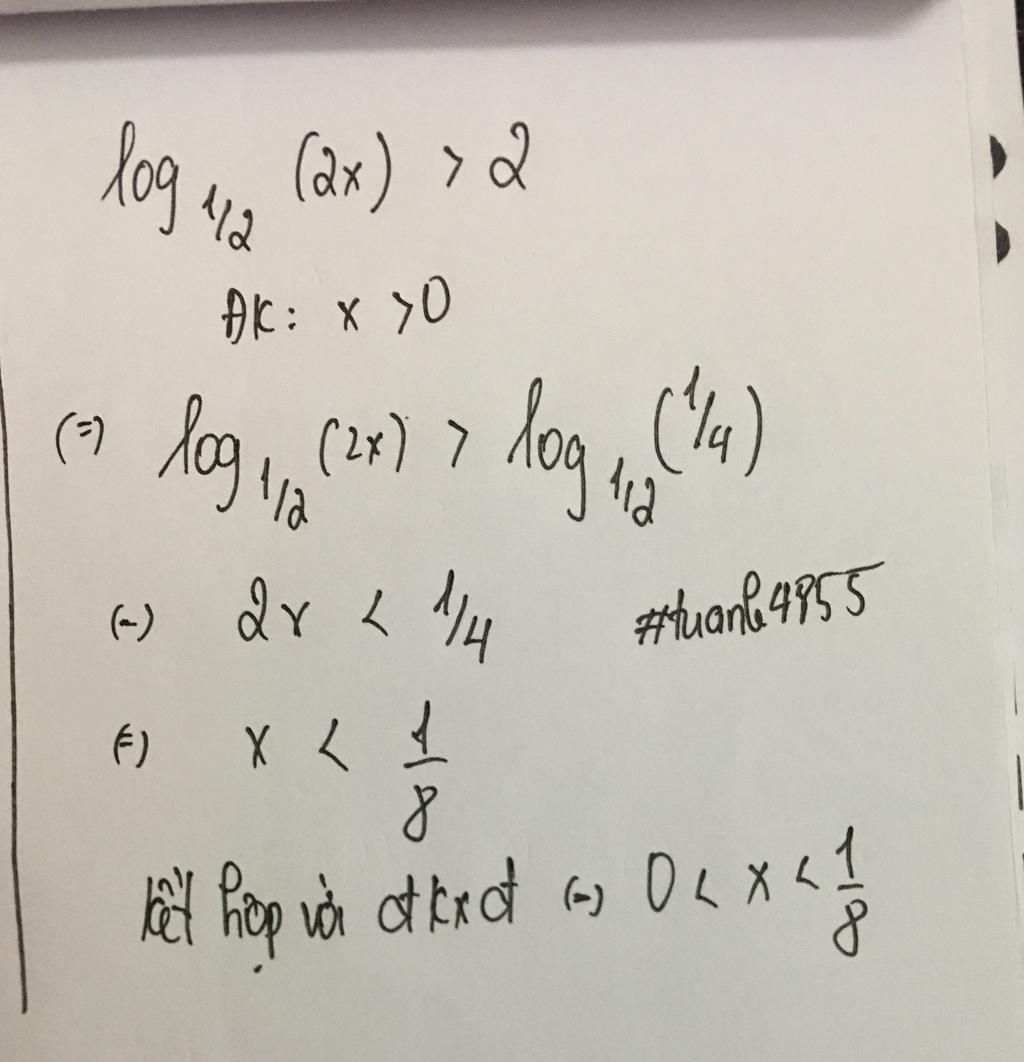 log 1/2 (2x) > 2
ĐK: x > 0
(=) log 1/2 (2x) > log 1/2 (1/4)
(-) 2x < 1/4 #tuanl4955
(=) x < 1/8
kết hợp với đkxđ (-) 0 < x < 1/8